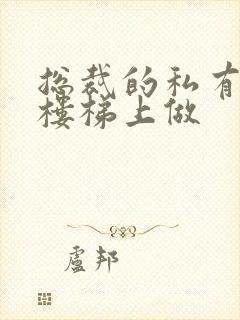 总裁的私有
楼梯上做
盧邦